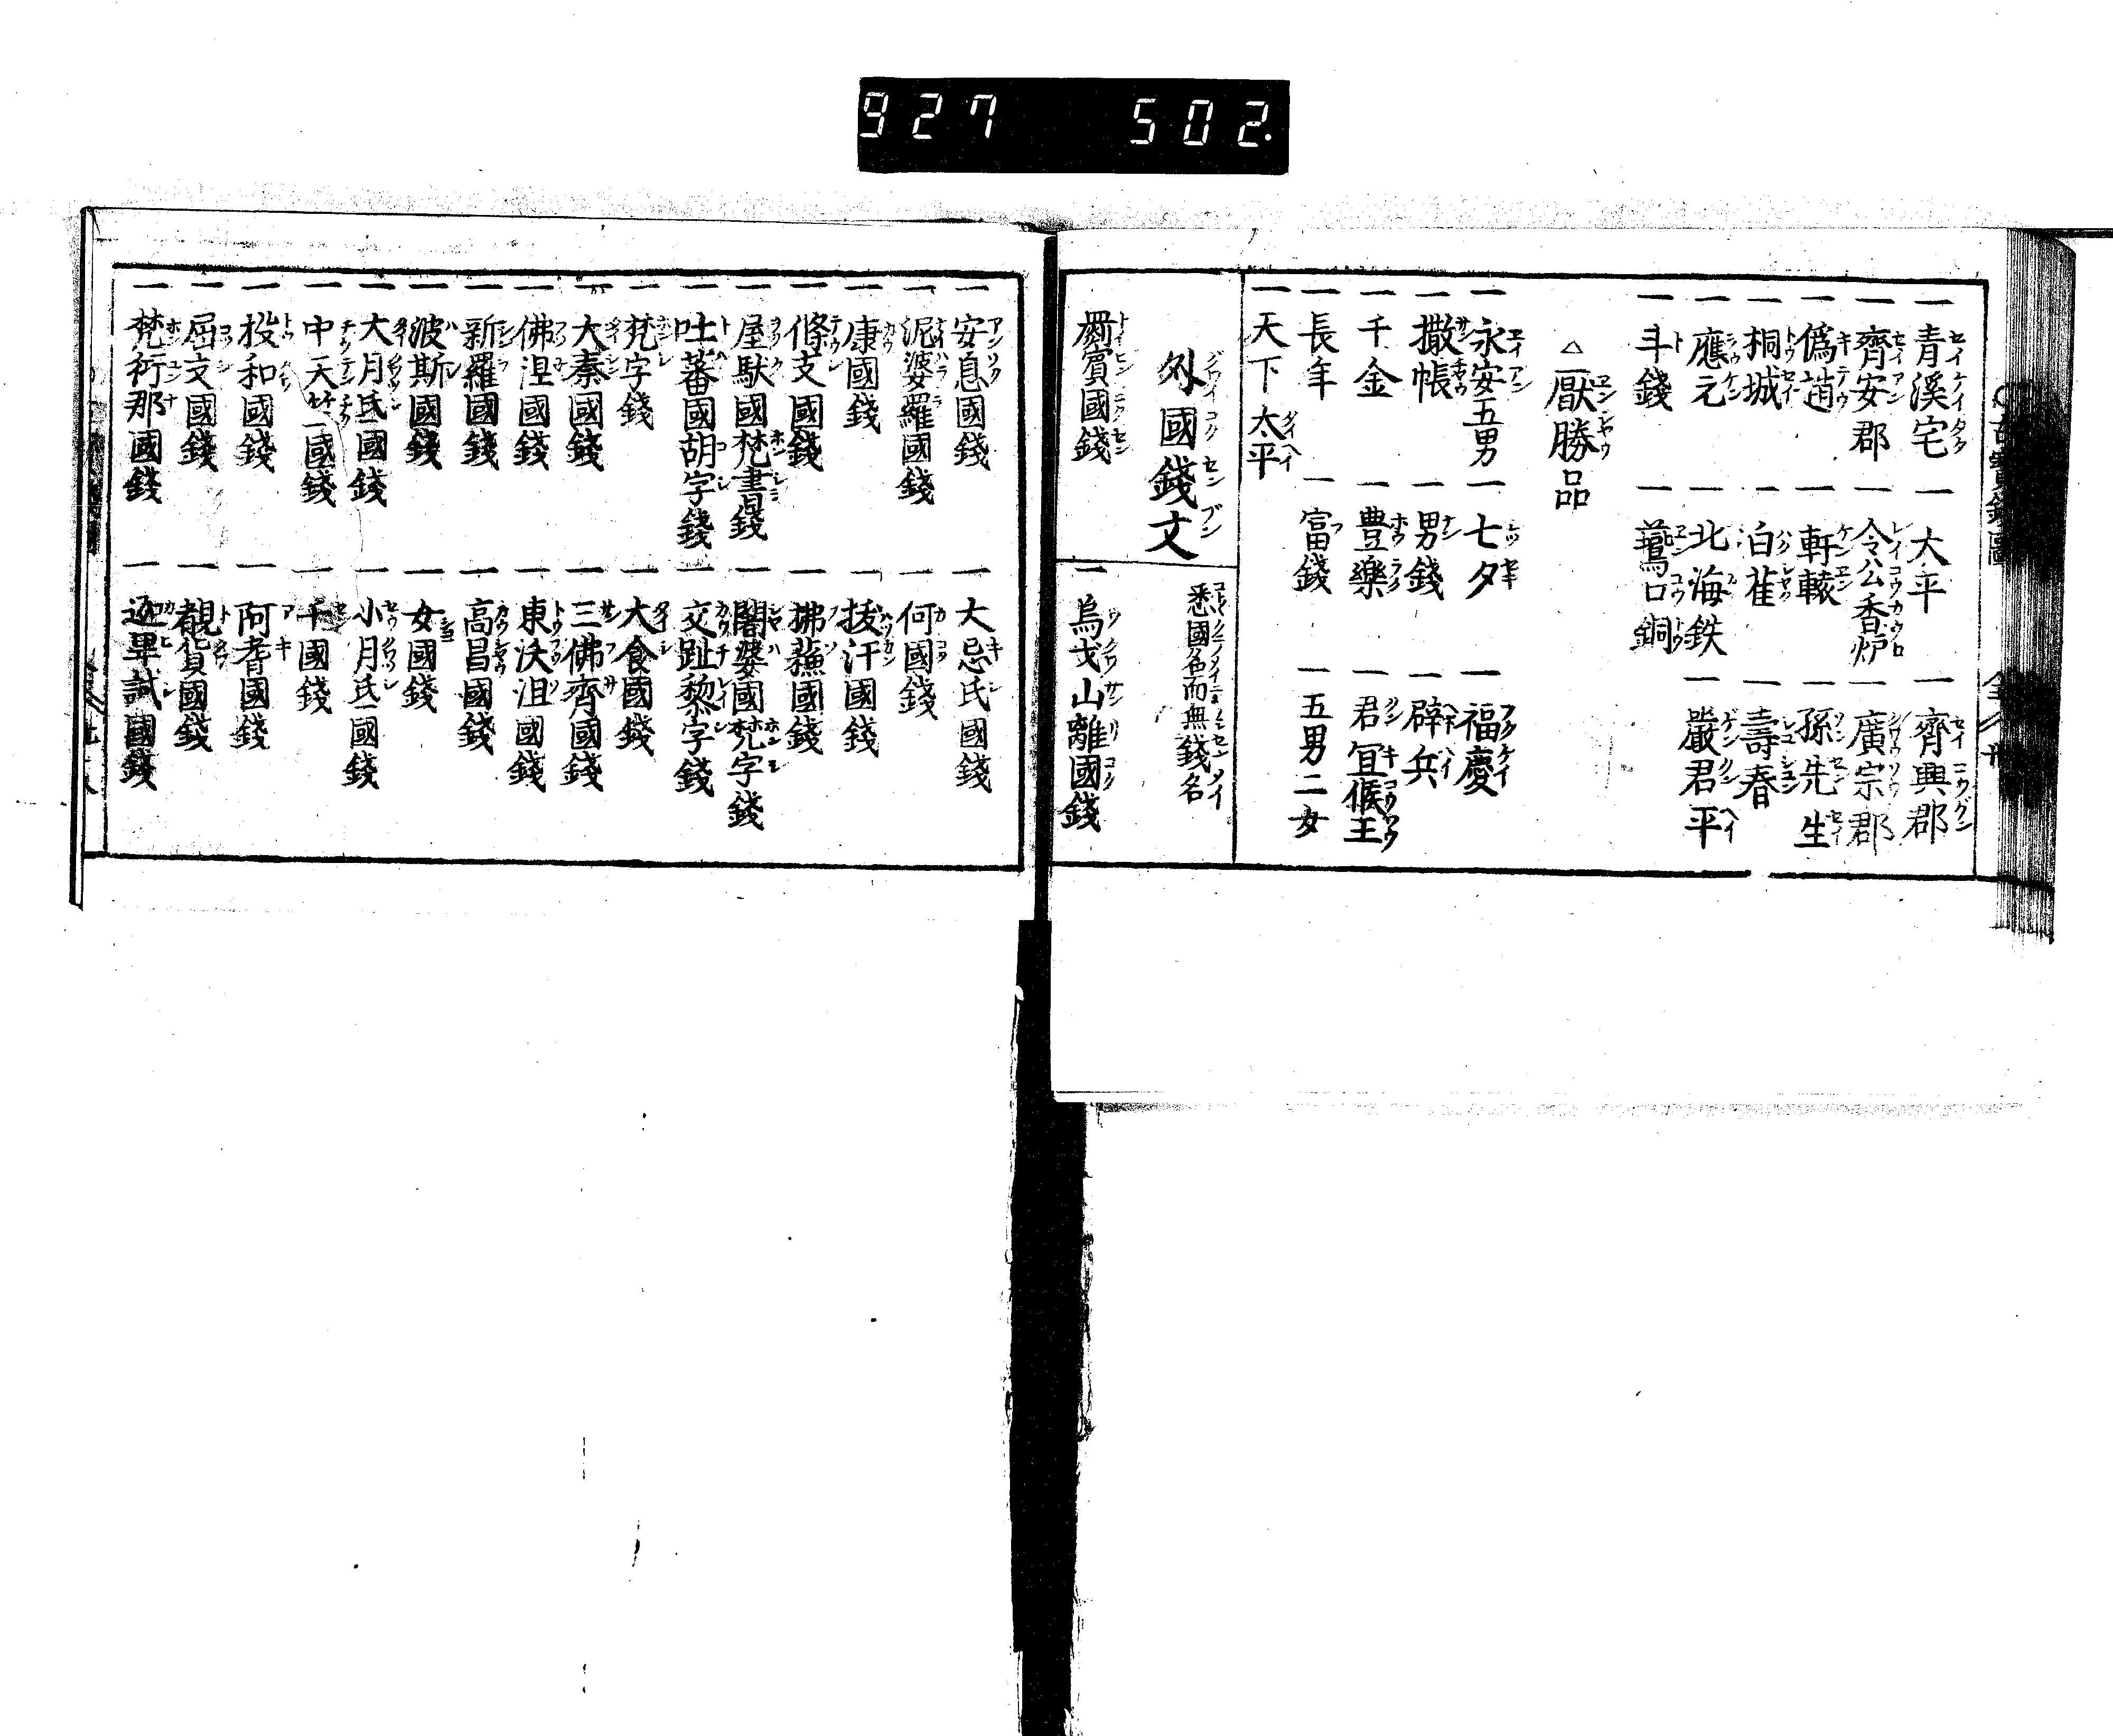 927 502.
一青溪宅 一太平 一齊興郡
一齊安郡 一令公香炉 一廣宗郡
一僞趙 一軒轅 一孫先生
一桐城 一白雀 一壽春
一應元 一北海鉄 一嚴君平
一斗錢 一鵞口銅
△厭勝品
一永安五男 一七夕 一福慶
一撒帳 一男錢 一辟兵
一千金 一豊樂 一君冝侯王
一長年 一富錢 一五男二女
一天下太平
外國錢文 悉國名而無錢名
一罽賓國錢 一烏戈山離國錢
一安息國錢 一大忌氏國錢
一泥婆羅國錢 一何國錢
一康國錢 一拔汗國錢
一條支國錢 一拂菻國錢
一屋馱國梵書錢 一闍婆國梵字錢
一吐蕃國胡字錢 一交趾黎字錢
一梵字錢 一大食國錢
一大秦國錢 一三佛齊國錢
一佛涅國錢 一東沃沮國錢
一新羅國錢 一高昌國錢
一波斯國錢 一女國錢
一大月氏國錢 一小月氏國錢
一中天竺國錢 一千國錢
一投和國錢 一阿耆國錢
一屈文國錢 一覩貨國錢
一梵衍那國錢 一迦畢試國錢